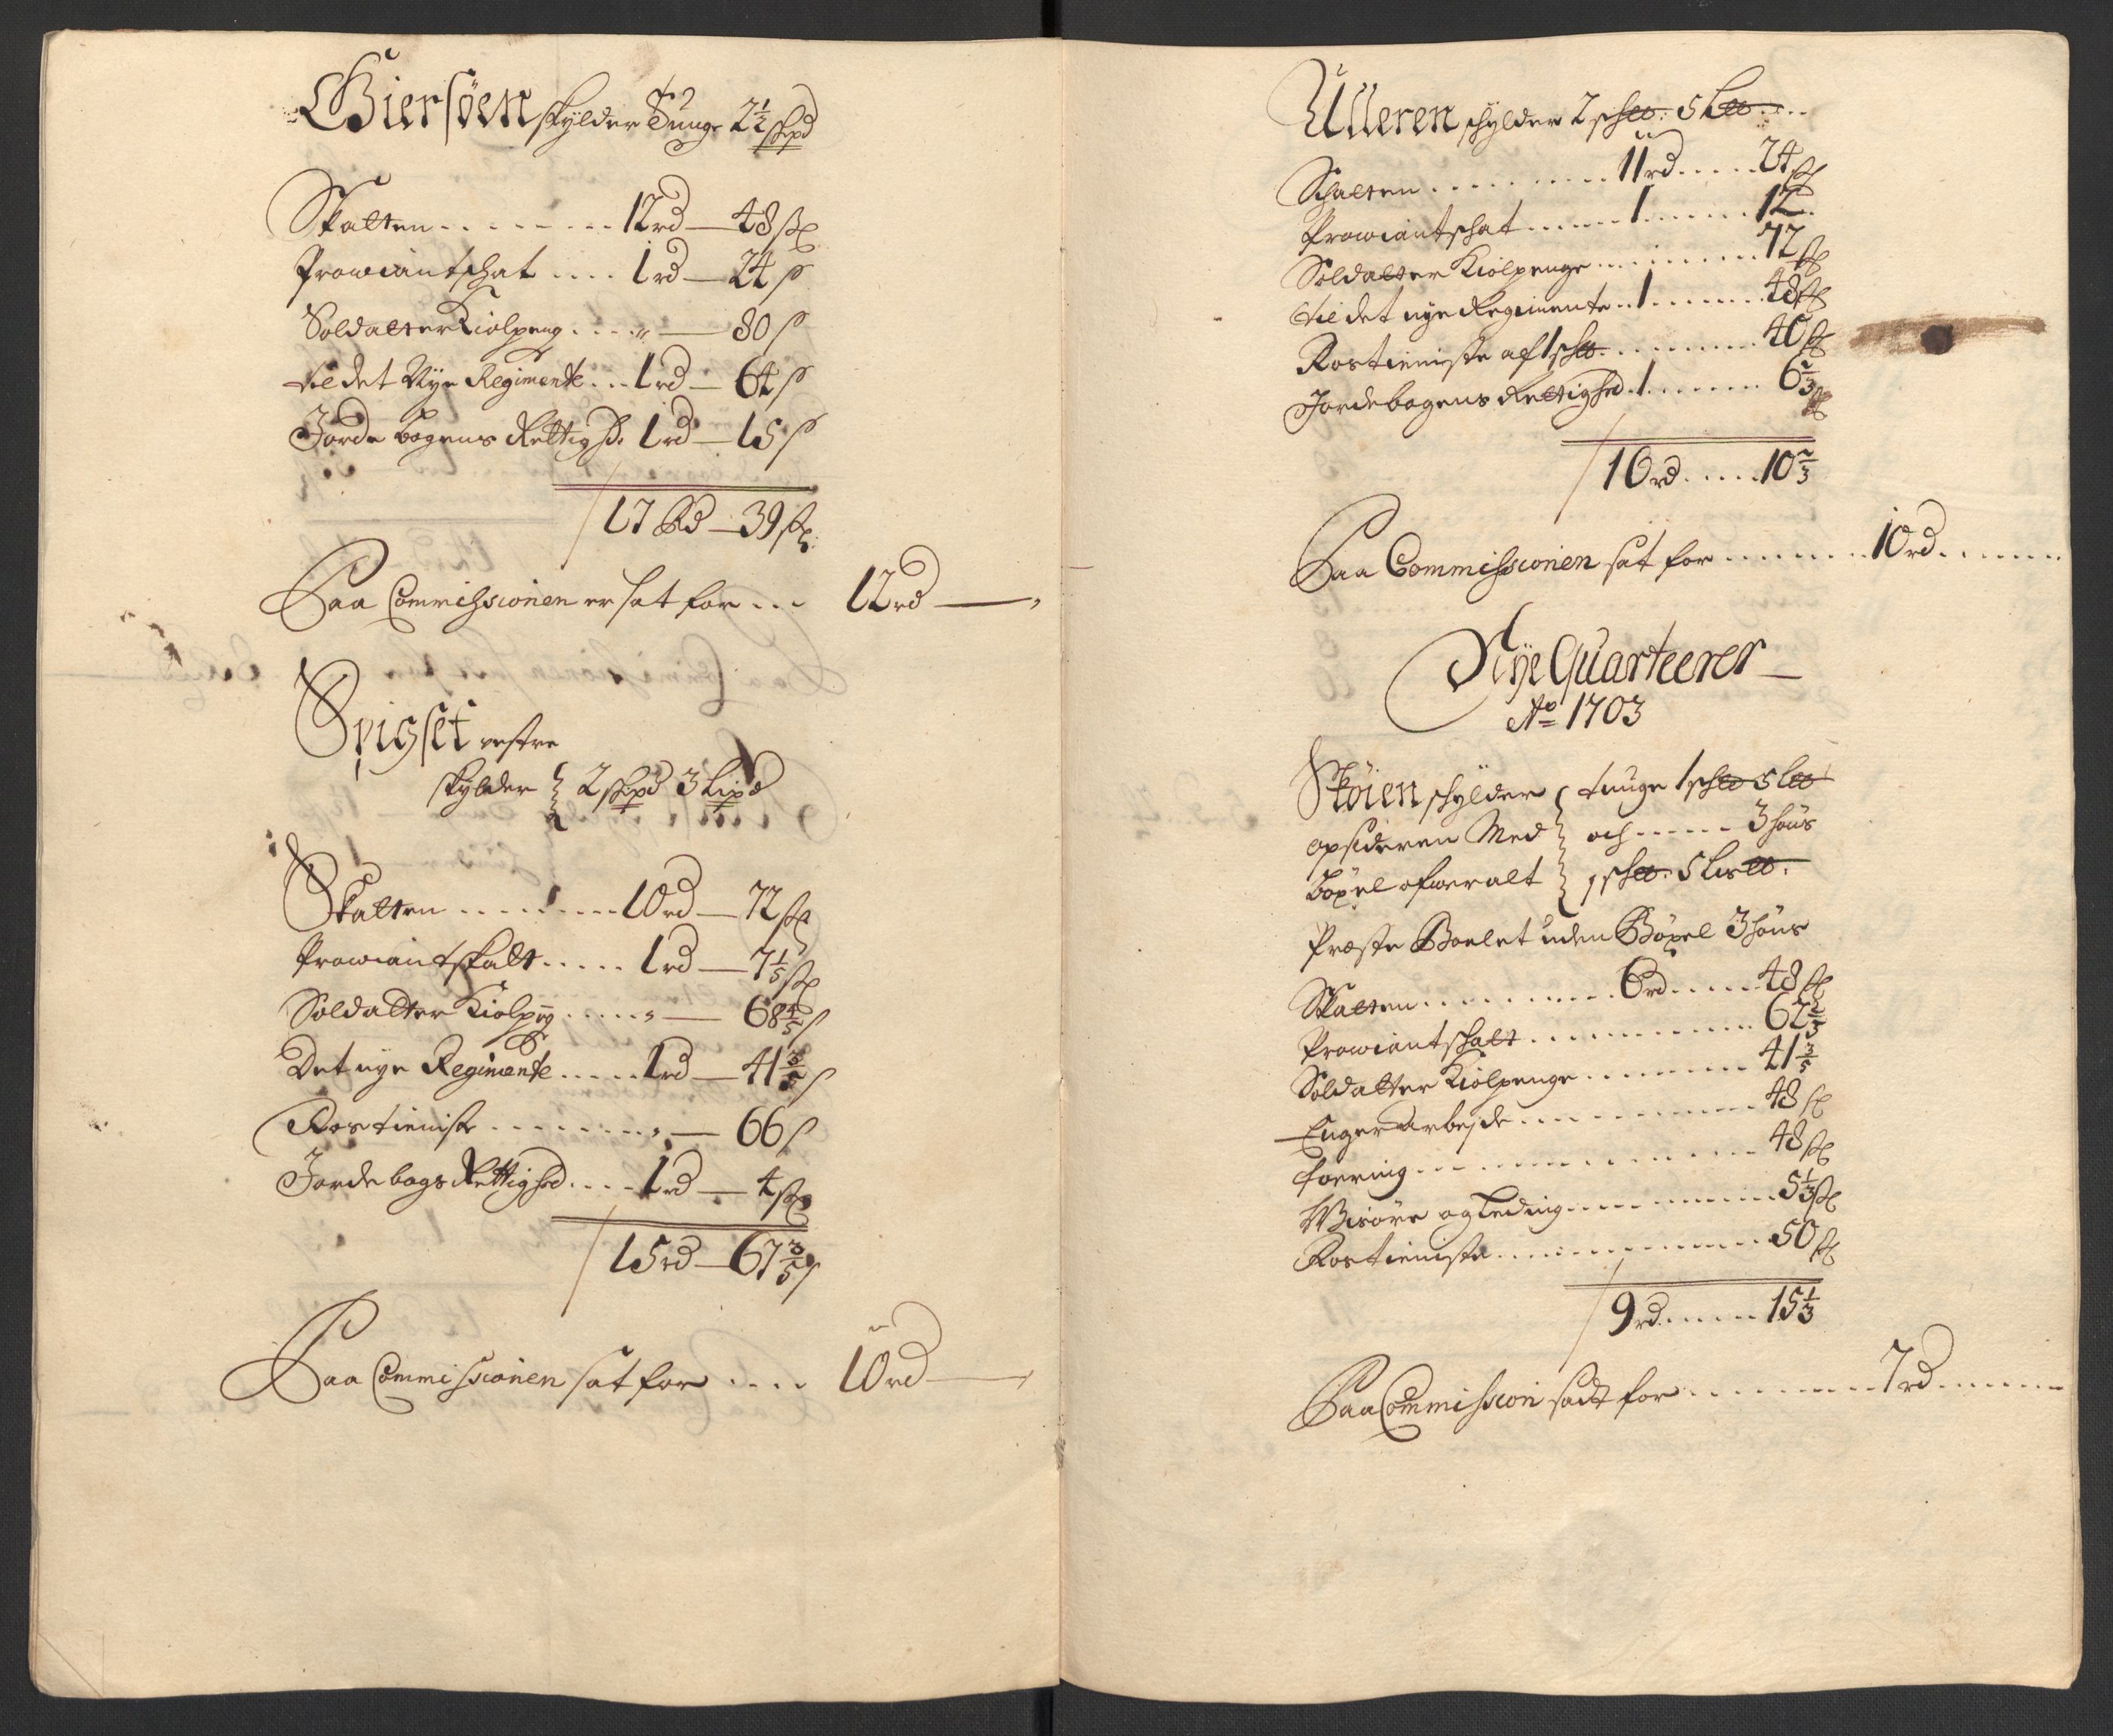 Giersøen skylder Tunge 2½ skpd
Skatten . . . . . . . . 12 rd — 48 ß
Prowiantschat . . . . 1 rd — 24 ß
Soldatter Kiolpeng . . . . „ — 80 ß
til det Nye Regimente . . . 1 rd — 64 ß
Jorde bogens Rettigh: 1 rd — 15 ß
17 Rd — 39 ß
Paa Commissionen er sat for . . . 12 rd —
Spigset vestre
skylder 2 skpd 3 Lispd
Skatten . . . . . . . 10 rd — 72 ß
Prowiantskatt . . . . . 1 rd — 7 1/5 ß
Soldatter Kiolpng . . . . . „ — 68 4/5 ß
Det nye Regimente . . . . . 1 rd — 41 3/5 ß
Rostieniste . . . . . . . . „ — 66 ß
Jordebogs Rettighed . . . . 1 rd — 4 ß
15 rd — 67 3/5 ß
Paa Commissionen sat for . . . . 10 rd —
Ulleren schylder 2 schll: 5 Lll . . .
Schatten . . . . . . . . . 11 rd . . . . . 24 ß
Prowiantschat . . . . . 1 . . . . . . 12.
Soldatter Kiolpenge . . . . . . . . . 72 ß
til det nye Regimente . . 1 . . . . . . . 48 ß
Rostieniste af 1 schll . . . . . . . . . 40 ß
Jordebogens Rettighed . 1 . . . . . . 6 2/3 ß
16 rd . . . . . 10 2/3
Paa Commissionen sat for . . . . . . . . 10 rd . . . . . . .
Nye Quarteerer
Ao 1703
Skøien schylder tunge 1 schll 5 Lll
opsideren Med och . . . . . 3 høns
bøxel ofweralt 1 schll: 5 Lisll.
Præste Boelet uden Bøxel 3 høns
Skatten . . . . . . . . . 6 rd . . . . . 48 ß
Prowiantschatt . . . . . . . . . . . 62 2/5
Soldatter Kiolpenge . . . . . . . . 41 3/5
Enger Arbejde . . . . . . . . . . . 48 ß
foering . . . . . . . . . . . . . . . 48 ß
Wisøre og Leding . . . . . . . . . 5 1/3 ß
Rostieniste . . . . . . . . . . . . . 50 ß
9 rd . . . . . . 15 1/3
Paa Commission sadt for . . . . . . . . . 7 rd . . . . . .